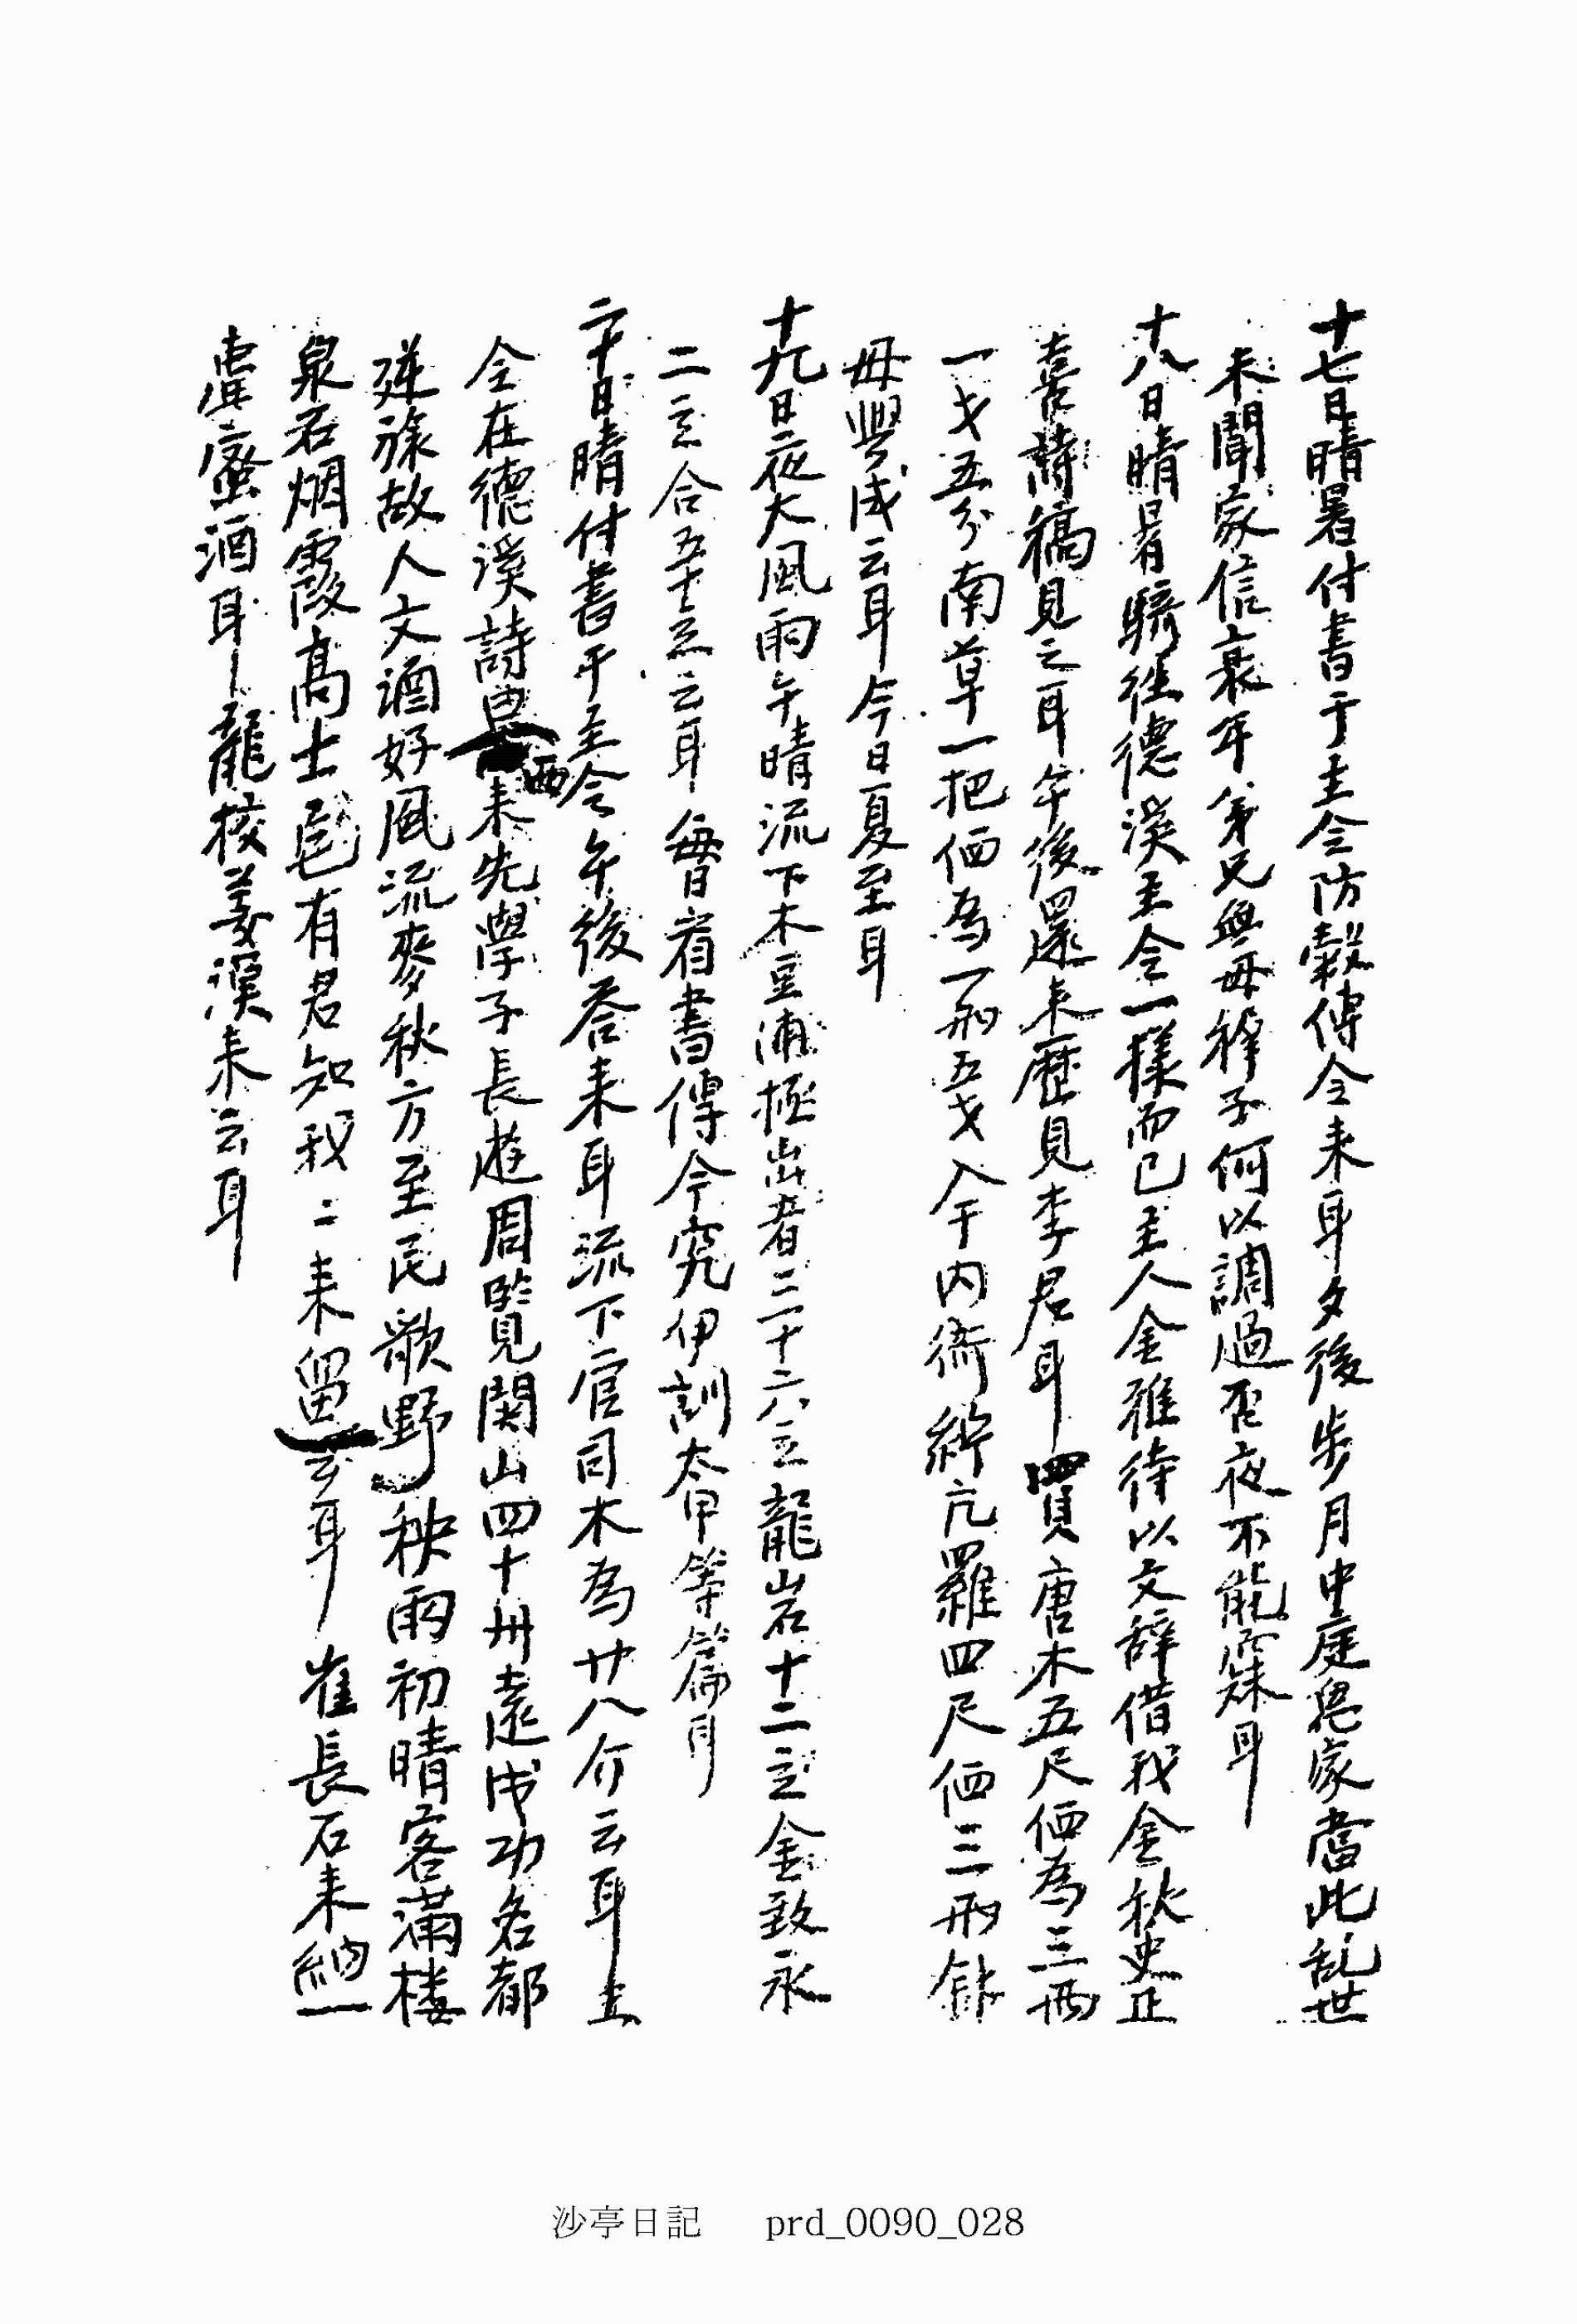 十七日晴暑付書于主令防穀傳令来耳夕後步月中庭思家當此乱世
未聞家信衰年弟兄與母穉子何以調過否夜不能寐耳
十八日晴暑騎徃德溪主令一樣而已主人金雅待以文辞借我金秋史正
喜詩稿見之耳午後還来歷見李君耳買唐木五尺価為三兩
一戈五分南草一把価為一兩五戈入于内衙 亢羅四尺価三兩
毋興成云耳今日夏至耳
十九日夜大風雨午晴流下木豆浦極出者三十六立龍岩十二立金致永
二立合五十立云耳每日看書傳今究伊訓太甲等篇耳
二十日晴付書于主令午後答来耳流下官司木為廿八介云耳主
令在德溪詩曰西来先學子長遊周覽関山四十州遠戍功名都
故人文酒好風流麥秋方至民歌野秧雨初晴客滿楼
泉石烟霞高士 有君知我二来留云耳崔長石来納一
壺蜜酒耳龍校姜漢来云耳
沙亭日記 prd_0090_028